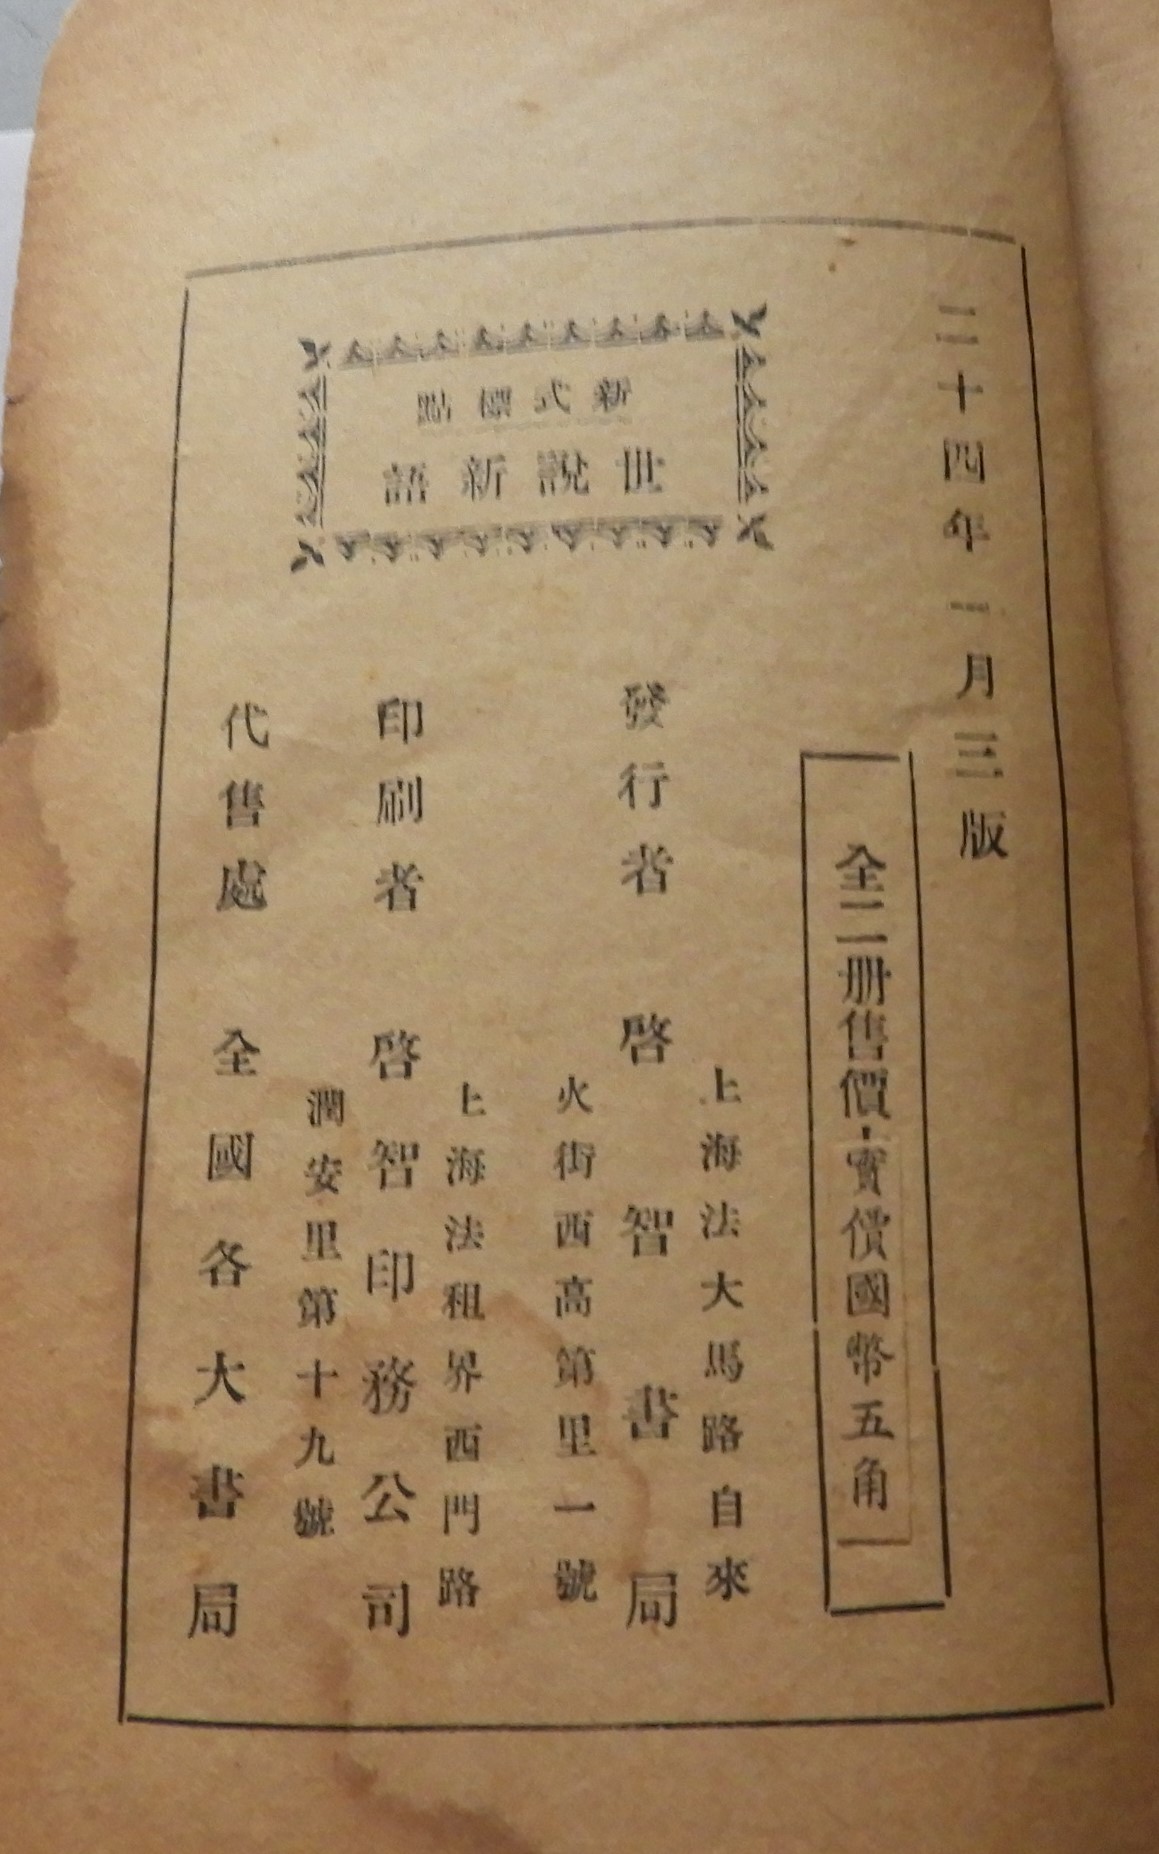 二十四年一月三版
全二册售價實價國幣五角
新式標點
世說新語
上海法大馬路自來
發行者 啓智書局
火街西高第里一號
上海法租界西門路
印刷者 啓智印務公司
潤安里第十九號
代售處 全國各大書局